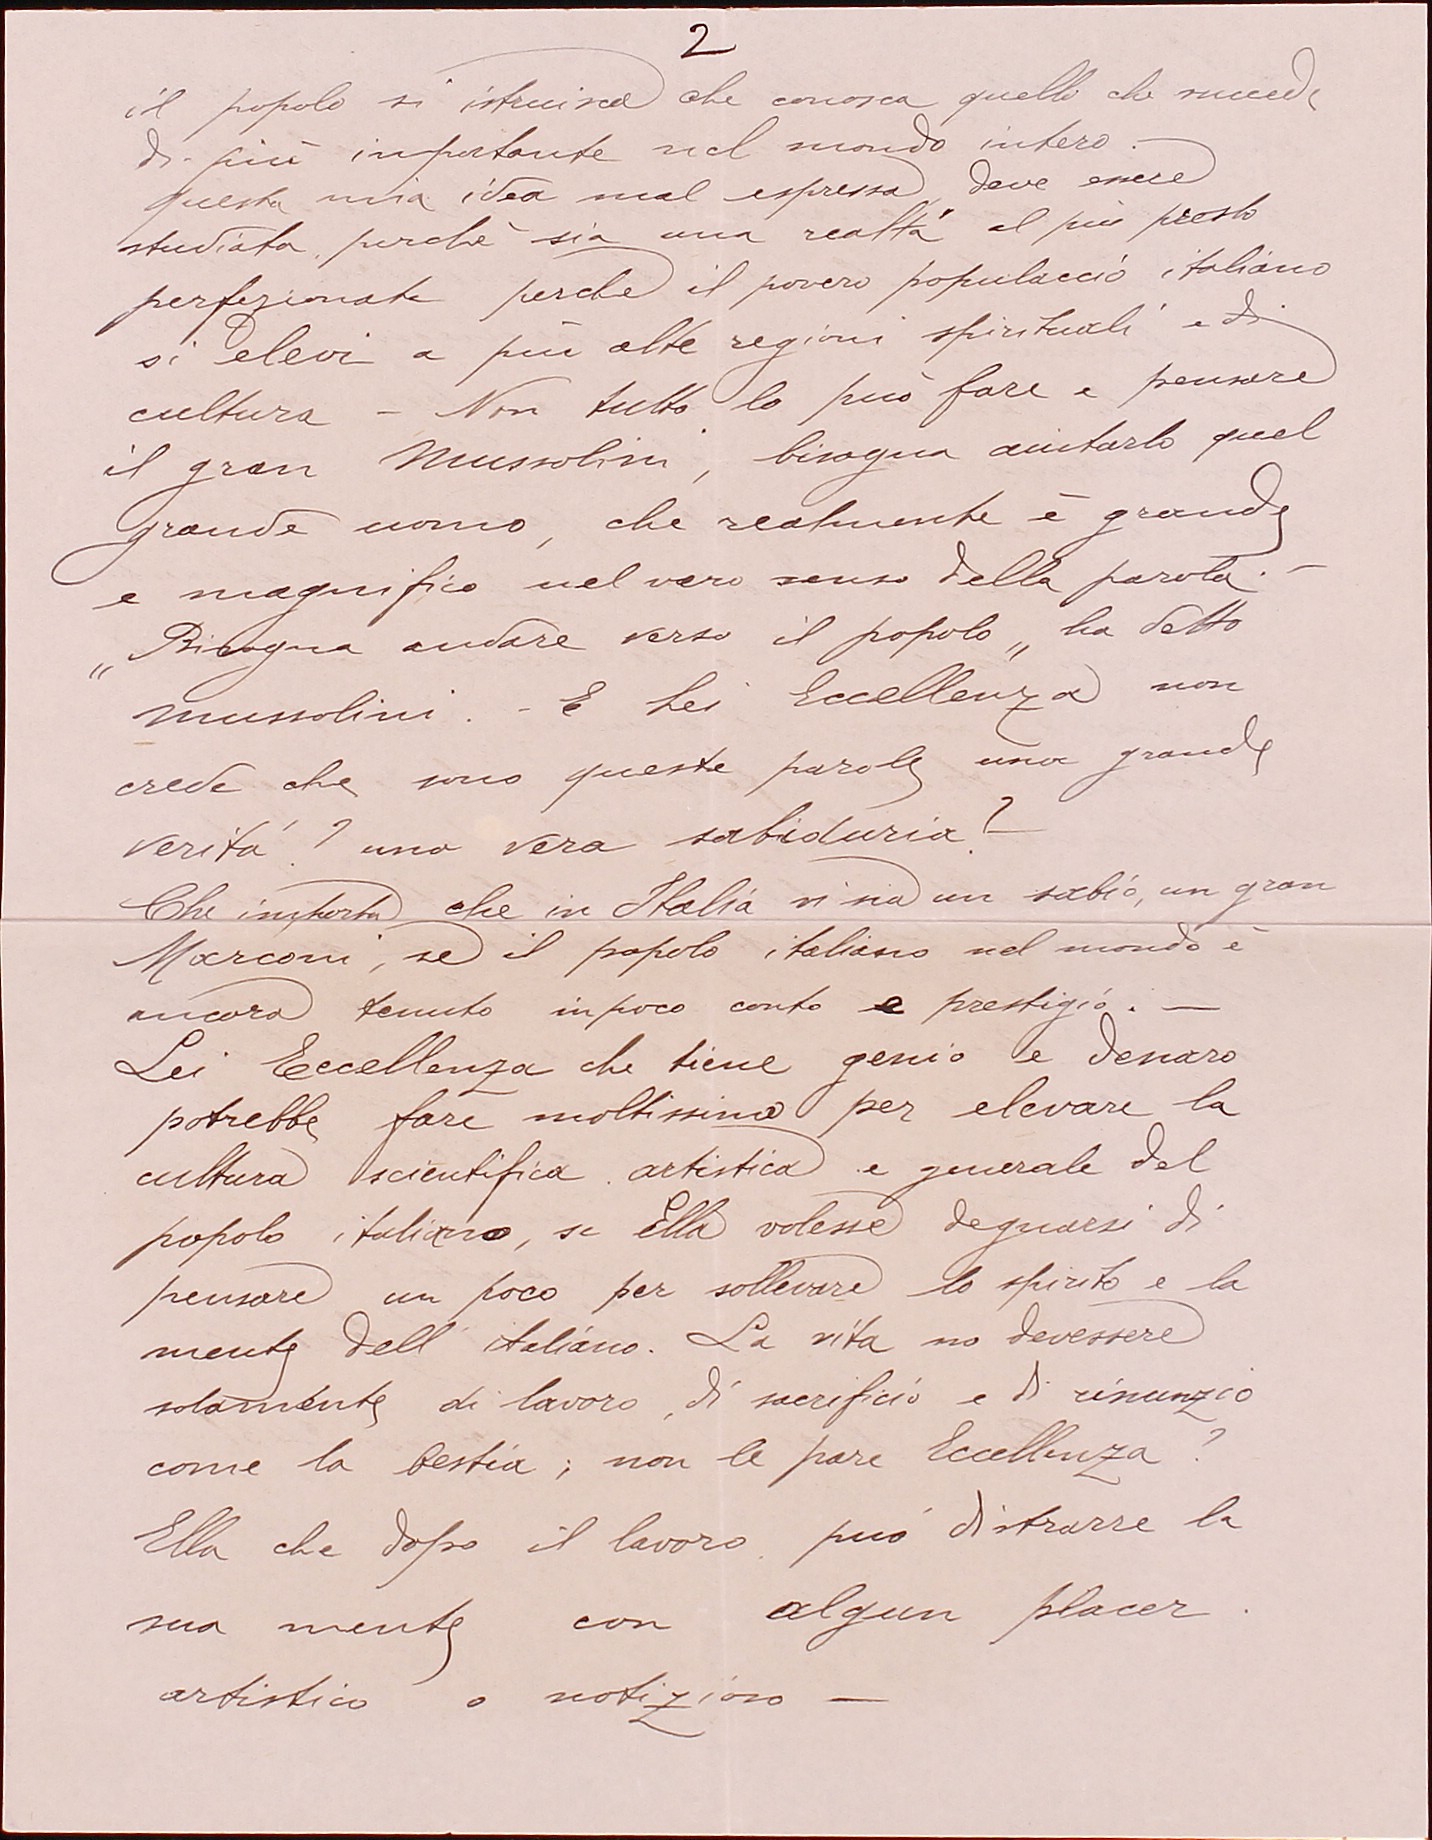 2
il popolo si istruisca che conosca quello che succede
di più importante nel mondo intero. —
Questa mia idea mal espressa, deve essere
studiata, perchè sia una realtá al più presto
perfezionata perchè il povero populaccio italiano
si elevi a più alte regioni spirituali e di
cultura — Non tutto lo può fare e pensare
il gran Mussolini, bisogna aiutarlo quel
grande uomo, che realmente è grande
e magnifico nel vero senso della parola. —
„Bisogna andare verso il popolo„ ha detto
Mussolini. - E Lei Eccellenza non
crede che sono queste parole una grande
veritá? una vera sabiduria? —
Che importa che in Italia vi sia un sabio, un gran
Marconi, se il popolo italiano nel mondo è
ancora tenuto in poco conto e prestigio. —
Lei Eccellenza che tiene genio e denaro
potrebbe fare moltissimo per elevare la
cultura scientifica artistica e generale del
popolo italiano, se Ella volesse degnarsi di
pensare un poco per sollevare lo spirito e la
mente dell'italiano. La vita no devessere
solamente di lavoro, di sacrificio e di rinunzio
come la bestia; non le pare Eccellenza?
Ella che dopo il lavoro può distrarre la
sua mente con algun placer
artistico o notizioso —